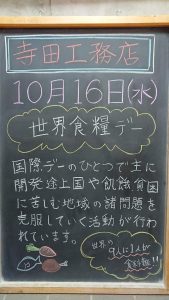 寺田工務店
10月16日(水)
世界食糧デー
国際デーのひとつで主に
開発途上国や飢餓、貧困
に苦しむ地域の諸問題を
克服していく活動が行わ
れています。
世界の
9人に1人が